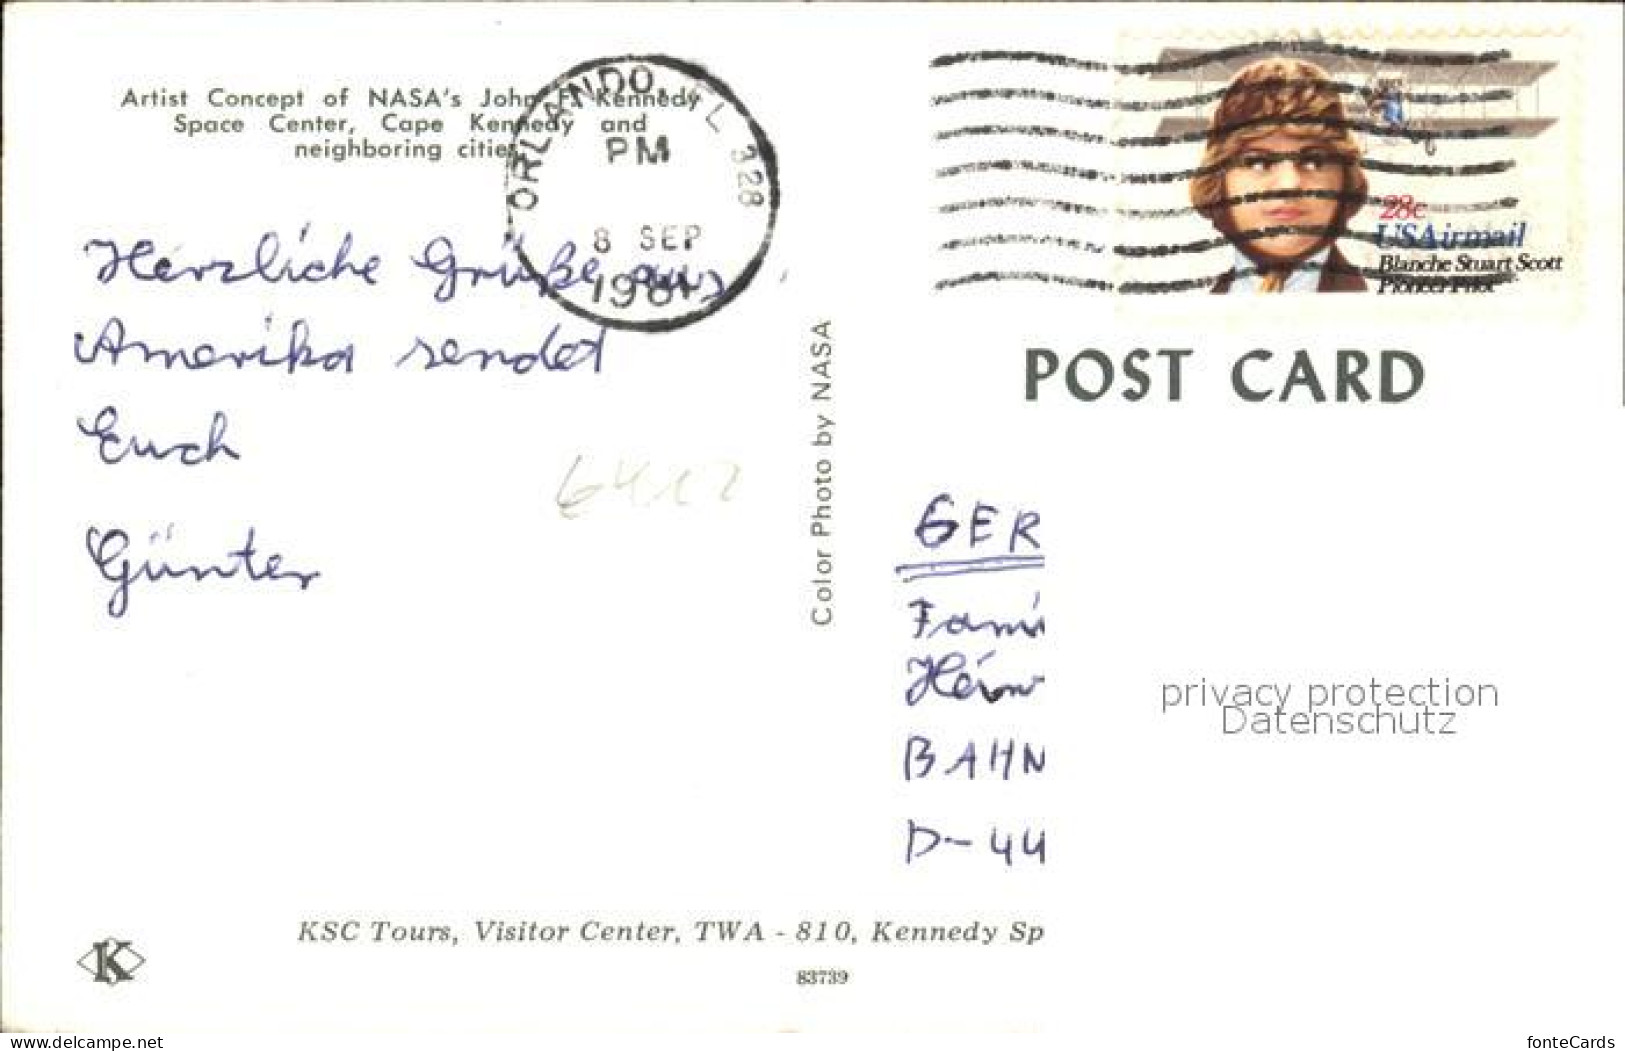 Artist Concept of NASA's John F. Kennedy
Space Center, Cape Kennedy and
neighboring cities.
ORLANDO, FL 328
PM
8 SEP
1981
28c
USAirmail
Blanche Stuart Scott
Pioneer Pilot
Herzliche Grüße aus
Amerika sendet
Euch
Günter
Color Photo by NASA
POST CARD
GER
Fami
BAHN
D-44
privacy protection
Datenschutz
KSC Tours, Visitor Center, TWA - 810, Kennedy Sp
K
83739
www.delcampe.net
fonteCards